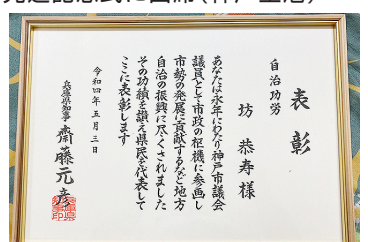 表彰
自治功労
坊 恭寿様
あなたは永年にわたり神戸市議会
議員として市政の枢機に参画し
市勢の発展に貢献するなど地方
自治の振興に尽くされました
その功績を讃え県民を代表して
ここに表彰します
令和四年五月三日
兵庫県知事 齋藤元彦